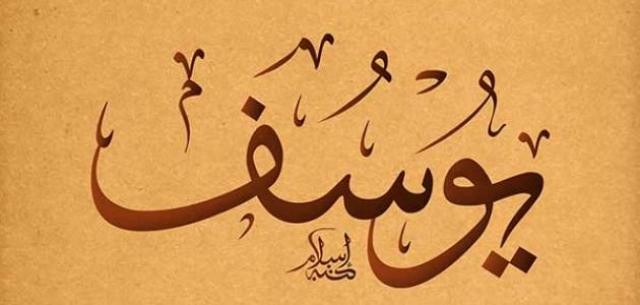 يُوسُف
كتبه إسلام